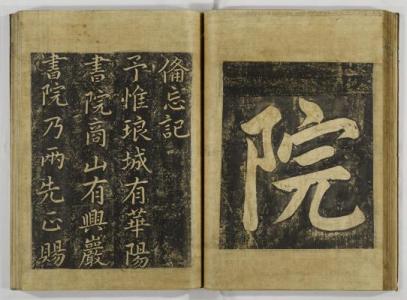 院
備忘記
予惟琅城有華陽
書院商山有興巖
書院乃兩先正賜